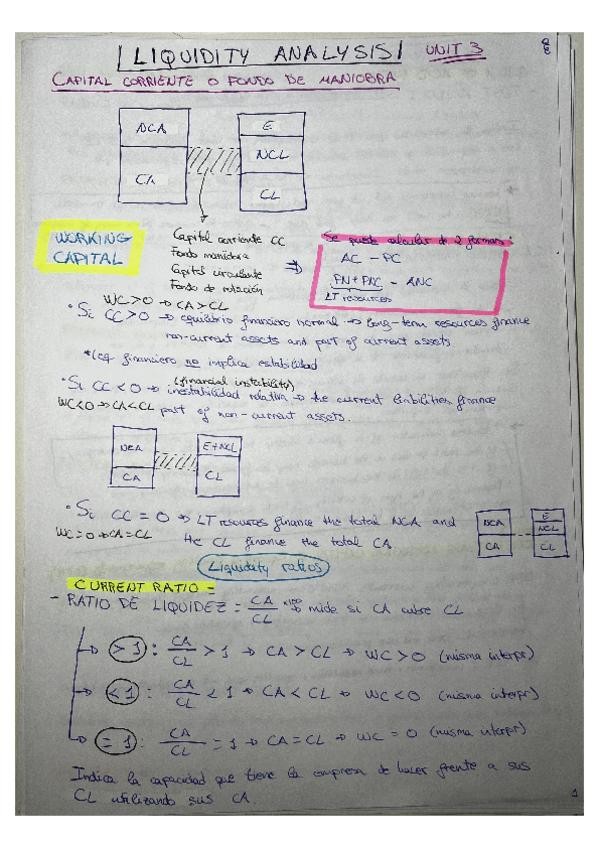 LIQUIDITY ANALYSIS UNIT 3
CAPITAL CORRIENTE O FONDO DE MANIOBRA
NCA
CA
E
NCL
CL
WORKING CAPITAL
Capital corriente CC
Fondo maniobra
Capital circulante
Fondo de rotación
Se puede calcular de 2 formas:
AC - PC
PN + PNC - ANC
LT resources
WC>0 → CA>CL
• Si CC>0 → equilibrio financiero normal → Long-term resources finance
non-current assets and part of current assets
*(eq. financiero no implica estabilidad
(financial instability)
• Si CC<0 → inestabilidad relativa → the current liabilities finance
WC<0 → CA<CL part of non-current assets.
NCA
CA
E+NCL
CL
• Si CC = 0 → LT resources finance the total NCA and
WC=0 → CA=CL the CL finance the total CA
NCA
CA
E
NCL
CL
Liquidity ratios
CURRENT RATIO =
- RATIO DE LIQUIDEZ = CA/CL ×100 → mide si CA cubre CL
→ >1 : CA/CL > 1 → CA > CL → WC>0 (misma interpr)
→ <1 : CA/CL < 1 → CA < CL → WC<0 (misma interpr)
→ =1 : CA/CL = 1 → CA = CL → WC = 0 (misma interpr)
Indica la capacidad que tiene la empresa de hacer frente a sus
CL utilizando sus CA.
1